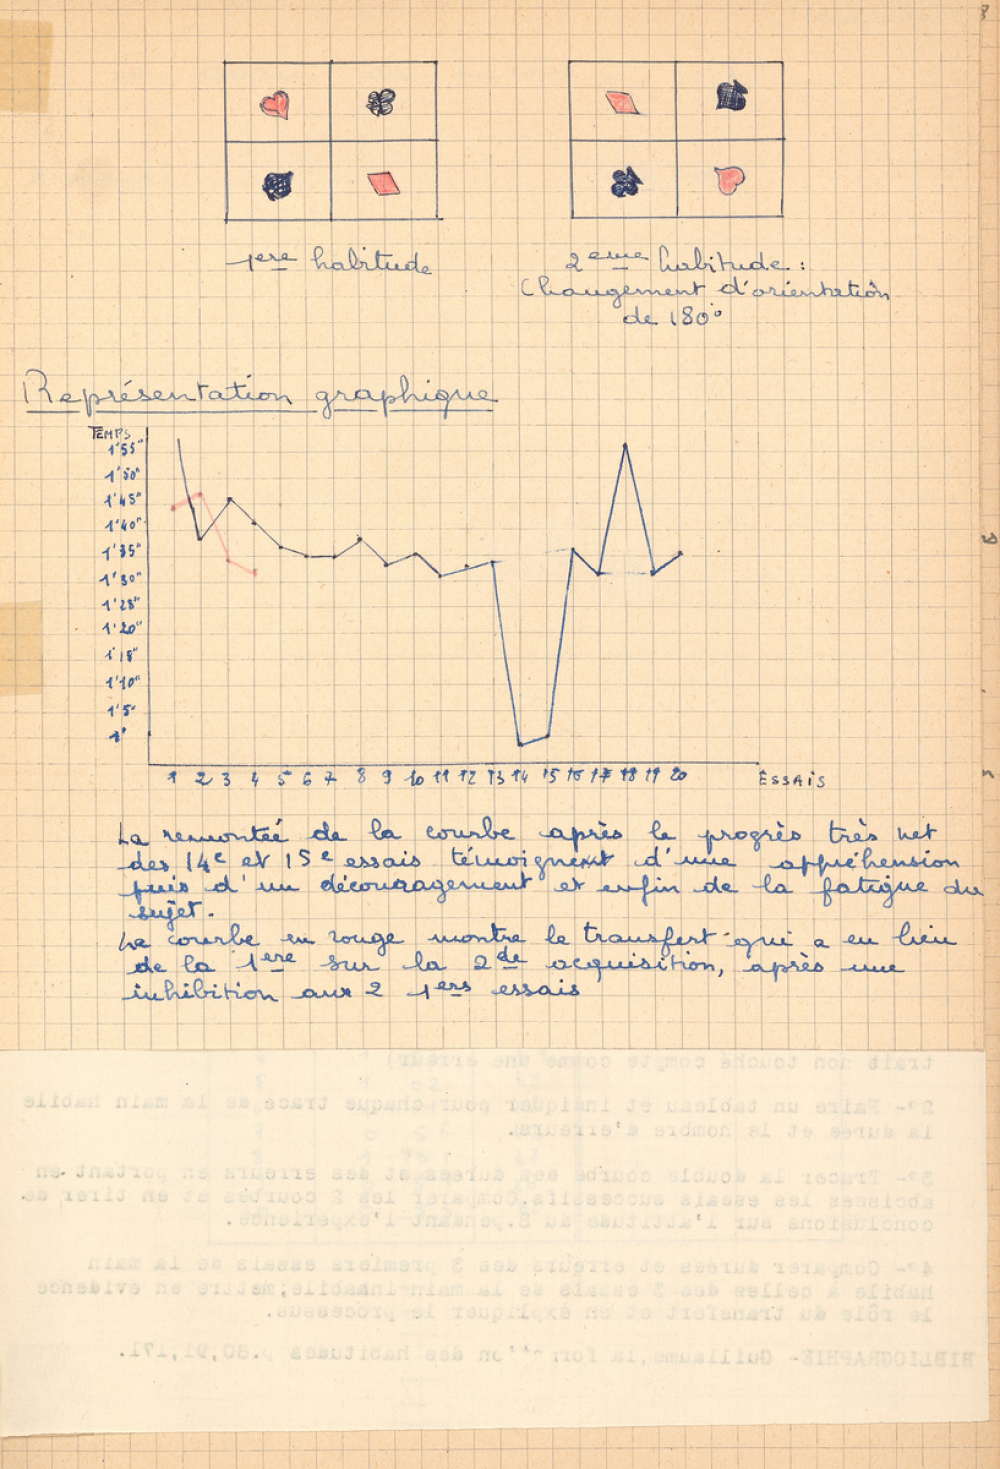 1ere habitude
2eme habitude :
Changement d'orientation
de 180°
Représentation graphique
TEMPS
1'55"
1'50"
1'45"
1'40"
1'35"
1'30"
1'25"
1'20"
1'15"
1'10"
1'5"
1'
1 2 3 4 5 6 7 8 9 10 11 12 13 14 15 16 17 18 19 20 ESSAIS
La remontée de la courbe après le progrès très net
des 14e et 15e essais témoignent d'une appréhension
puis d'un découragement et enfin de la fatigue du
sujet.
La courbe en rouge montre le transfert qui a eu lieu
de la 1ere sur la 2de acquisition, après une
inhibition aux 2 1ers essais
trait non touché compte comme une erreur)
2°- Faire un tableau et indiquer pour chaque tracé de la main habile
la durée et le nombre d'erreurs.
3°- Tracer la double courbe des durées et des erreurs en portant en
abcisses les essais successifs. Comparer les 2 courbes et en tirer de
conclusions sur l'attitude du S. pendant l'expérience.
4°- Comparer durées et erreurs des 3 premiers essais de la main
habile à celles des 3 essais de la main inhabile; mettre en évidence
le rôle du transfert et en expliquer le processus.
BIBLIOGRAPHIE- Guillaume, la formation des habitudes p.80,91,171.